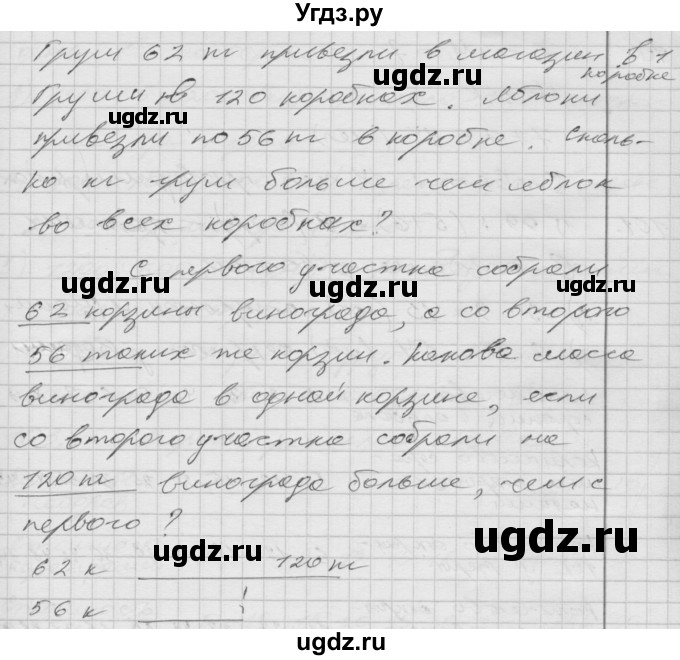 Угдз.ру
Груш 62 кг привезли в магазин в 1
коробке
Груши в 120 коробках. Яблоки
привезли по 56 кг в коробке. Сколь-
ко кг груш больше чем яблок
во всех коробках?
С первого участка собрали
62 корзины винограда, а со второго
56 таких же корзин. Какова масса
винограда в одной корзине, если
со второго участка собрали на
120 кг винограда больше, чем с
первого?
62 к 120 кг
56 к
ugdz.ru
ugdz.ru
ugdz.ru
ugdz.ru
ugdz.ru
ugdz.ru
ugdz.ru
ugdz.ru
ugdz.ru
ugdz.ru
ugdz.ru
ugdz.ru